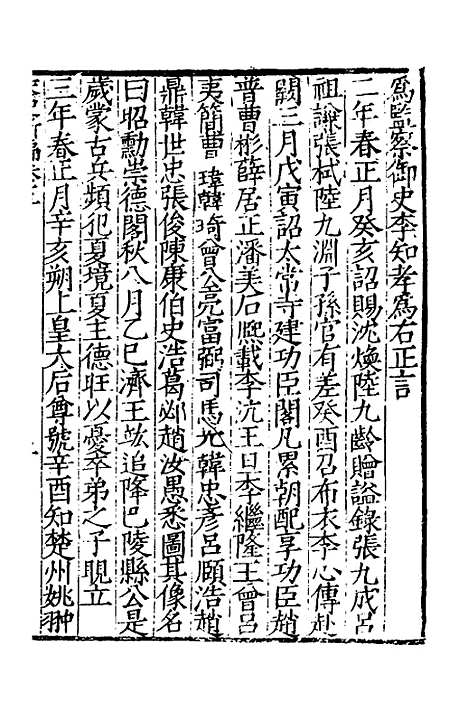 為監察御史李知孝為右正言
二年春正月癸亥詔賜沈煥陸九齡贈謚錄張九成呂
祖謙張栻陸九淵子孫官有差癸酉召布衣李心傳赴
闕三月戊寅詔太常寺建功臣閣凡累朝配享功臣趙
普曹彬薛居正潘美石熙載李沆王旦李繼隆王曾呂
夷簡曹瑋韓琦曾公亮富弼司馬光韓忠彥呂頤浩趙
鼎韓世忠張俊陳康伯史浩葛邲趙汝愚悉圖其像名
曰昭勳崇德閣秋八月乙巳濟王竑追降巴陵縣公是
歲蒙古兵頻犯夏境夏主德旺以憂卒弟之子睍立
三年春正月辛亥朔上皇大后尊號辛酉知楚州姚翀